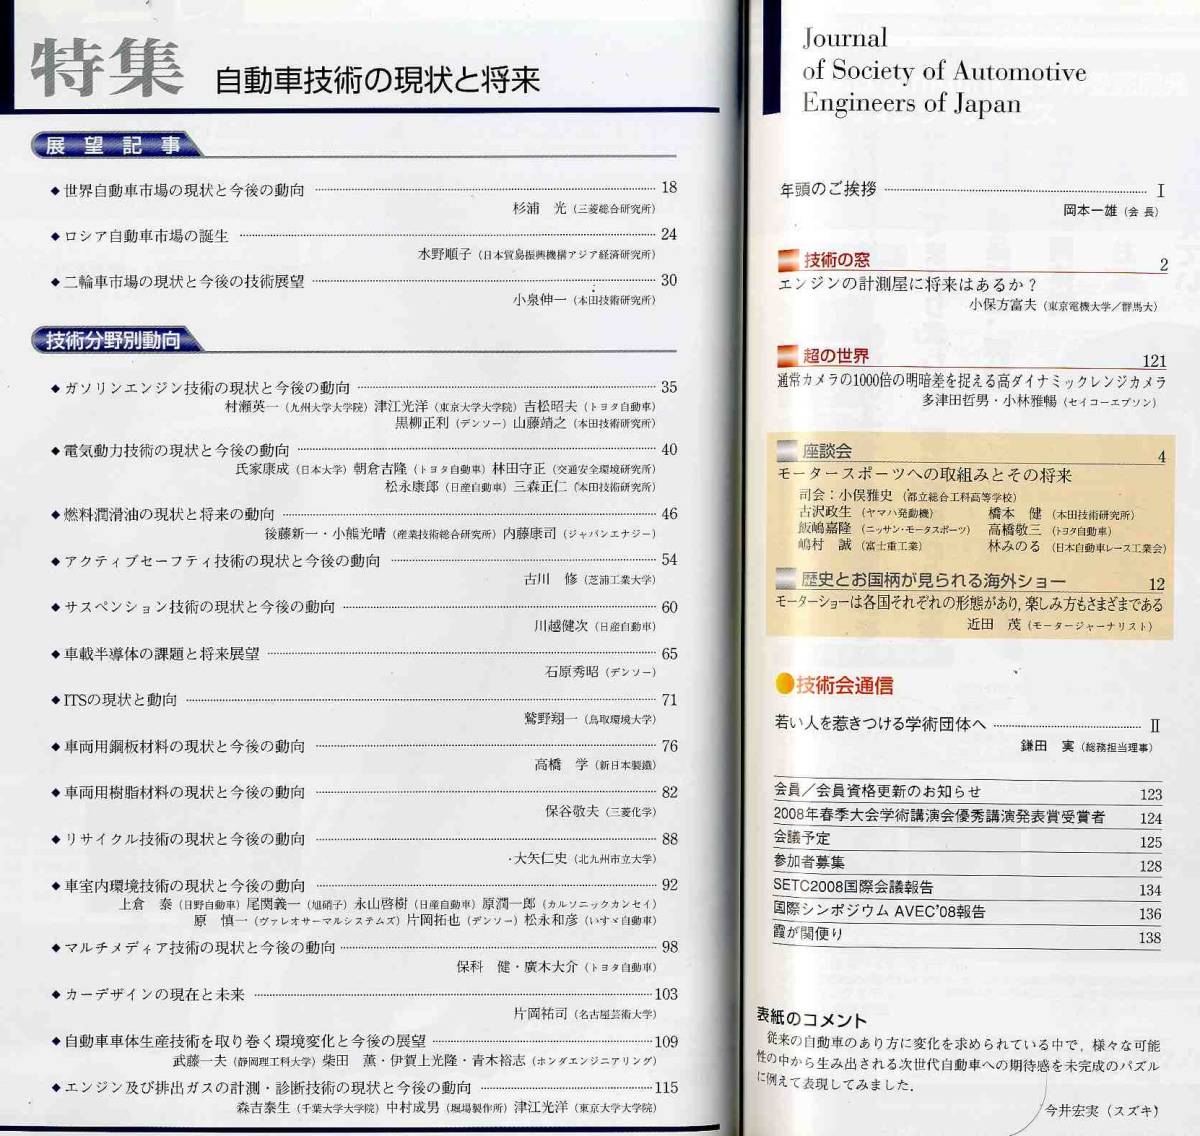 特集 自動車技術の現状と将来
展望記事
◆世界自動車市場の現状と今後の動向 18
杉浦 光（三菱総合研究所）
◆ロシア自動車市場の誕生 24
水野順子（日本貿易振興機構アジア経済研究所）
◆二輪車市場の現状と今後の技術展望 30
小泉伸一（本田技術研究所）
技術分野別動向
◆ガソリンエンジン技術の現状と今後の動向 35
村瀬英一（九州大学大学院）津江光洋（東京大学大学院）吉松昭夫（トヨタ自動車）
黒柳正利（デンソー）山藤靖之（本田技術研究所）
◆電気動力技術の現状と今後の動向 40
氏家康成（日本大学）朝倉吉隆（トヨタ自動車）林田守正（交通安全環境研究所）
松永康郎（日産自動車）三森正仁（本田技術研究所）
◆燃料潤滑油の現状と将来の動向 46
後藤新一・小熊光晴（産業技術総合研究所）内藤康司（ジャパンエナジー）
◆アクティブセーフティ技術の現状と今後の動向 54
古川 修（芝浦工業大学）
◆サスペンション技術の現状と今後の動向 60
川越健次（日産自動車）
◆車載半導体の課題と将来展望 65
石原秀昭（デンソー）
◆ITSの現状と動向 71
鷲野翔一（鳥取環境大学）
◆車両用鋼板材料の現状と今後の動向 76
高橋 学（新日本製鐵）
◆車両用樹脂材料の現状と今後の動向 82
保谷敬夫（三菱化学）
◆リサイクル技術の現状と今後の動向 88
大矢仁史（北九州市立大学）
◆車室内環境技術の現状と今後の動向 92
上倉 泰（日野自動車）尾関義一（旭硝子）永山啓樹（日産自動車）原潤一郎（カルソニックカンセイ）
原 慎一（ヴァレオサーマルシステムズ）片岡拓也（デンソー）松永和彦（いすゞ自動車）
◆マルチメディア技術の現状と今後の動向 98
保科 健・廣木大介（トヨタ自動車）
◆カーデザインの現在と未来 103
片岡祐司（名古屋芸術大学）
◆自動車車体生産技術を取り巻く環境変化と今後の展望 109
武藤一夫（静岡理工科大学）柴田 薫・伊賀上光隆・青木裕志（ホンダエンジニアリング）
◆エンジン及び排出ガスの計測・診断技術の現状と今後の動向 115
森吉泰生（千葉大学大学院）中村成男（堀場製作所）津江光洋（東京大学大学院）
Journal
of Society of Automotive
Engineers of Japan
年頭のご挨拶 I
岡本一雄（会 長）
技術の窓 2
エンジンの計測屋に将来はあるか？
小保方富夫（東京電機大学／群馬大）
超の世界 121
通常カメラの1000倍の明暗差を捉える高ダイナミックレンジカメラ
多津田哲男・小林雅暢（セイコーエプソン）
座談会 4
モータースポーツへの取組みとその将来
司会：小俣雅史（都立総合工科高等学校）
古沢政生（ヤマハ発動機） 橋本 健（本田技術研究所）
飯嶋嘉隆（ニッサン・モータスポーツ） 高橋敬三（トヨタ自動車）
嶋村 誠（富士重工業） 林みのる（日本自動車レース工業会）
歴史とお国柄が見られる海外ショー 12
モーターショーは各国それぞれの形態があり，楽しみ方もさまざまである
近田 茂（モータージャーナリスト）
技術会通信
若い人を惹きつける学術団体へ II
鎌田 実（総務担当理事）
会員／会員資格更新のお知らせ 123
2008年春季大会学術講演会優秀講演発表賞受賞者 124
会議予定 125
参加者募集 128
SETC2008国際会議報告 134
国際シンポジウム AVEC'08報告 136
霞が関便り 138
表紙のコメント
従来の自動車のあり方に変化を求められている中で，様々な可能
性の中から生み出される次世代自動車への期待感を未完成のパズル
に例えて表現してみました．
今井宏実（スズキ）